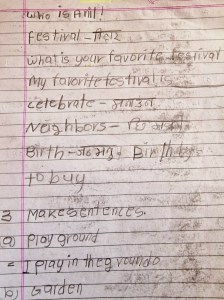 who is Anil?
festival - त्यौहार
what is your favorite festival
my favorite festival is
celebrate - मनाना
Neighbors -
Birth - Birthday
to buy
3 Make sentences.
a) play ground
= I play in the ground.
b) Garden